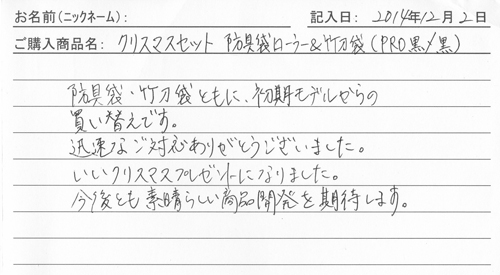 お名前(ニックネーム): 記入日: 2014年12月2日
ご購入商品名: クリスマスセット 防具袋ローラー&竹刀袋(PRO黒×黒)
防具袋・竹刀袋ともに、初期モデルからの
買い替えです。
迅速なご対応ありがとうございました。
いいクリスマスプレゼントになりました。
今後とも素晴らしい商品開発を期待します。